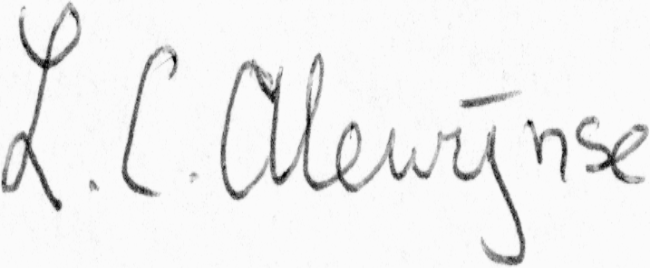 L. C. Alewijnse